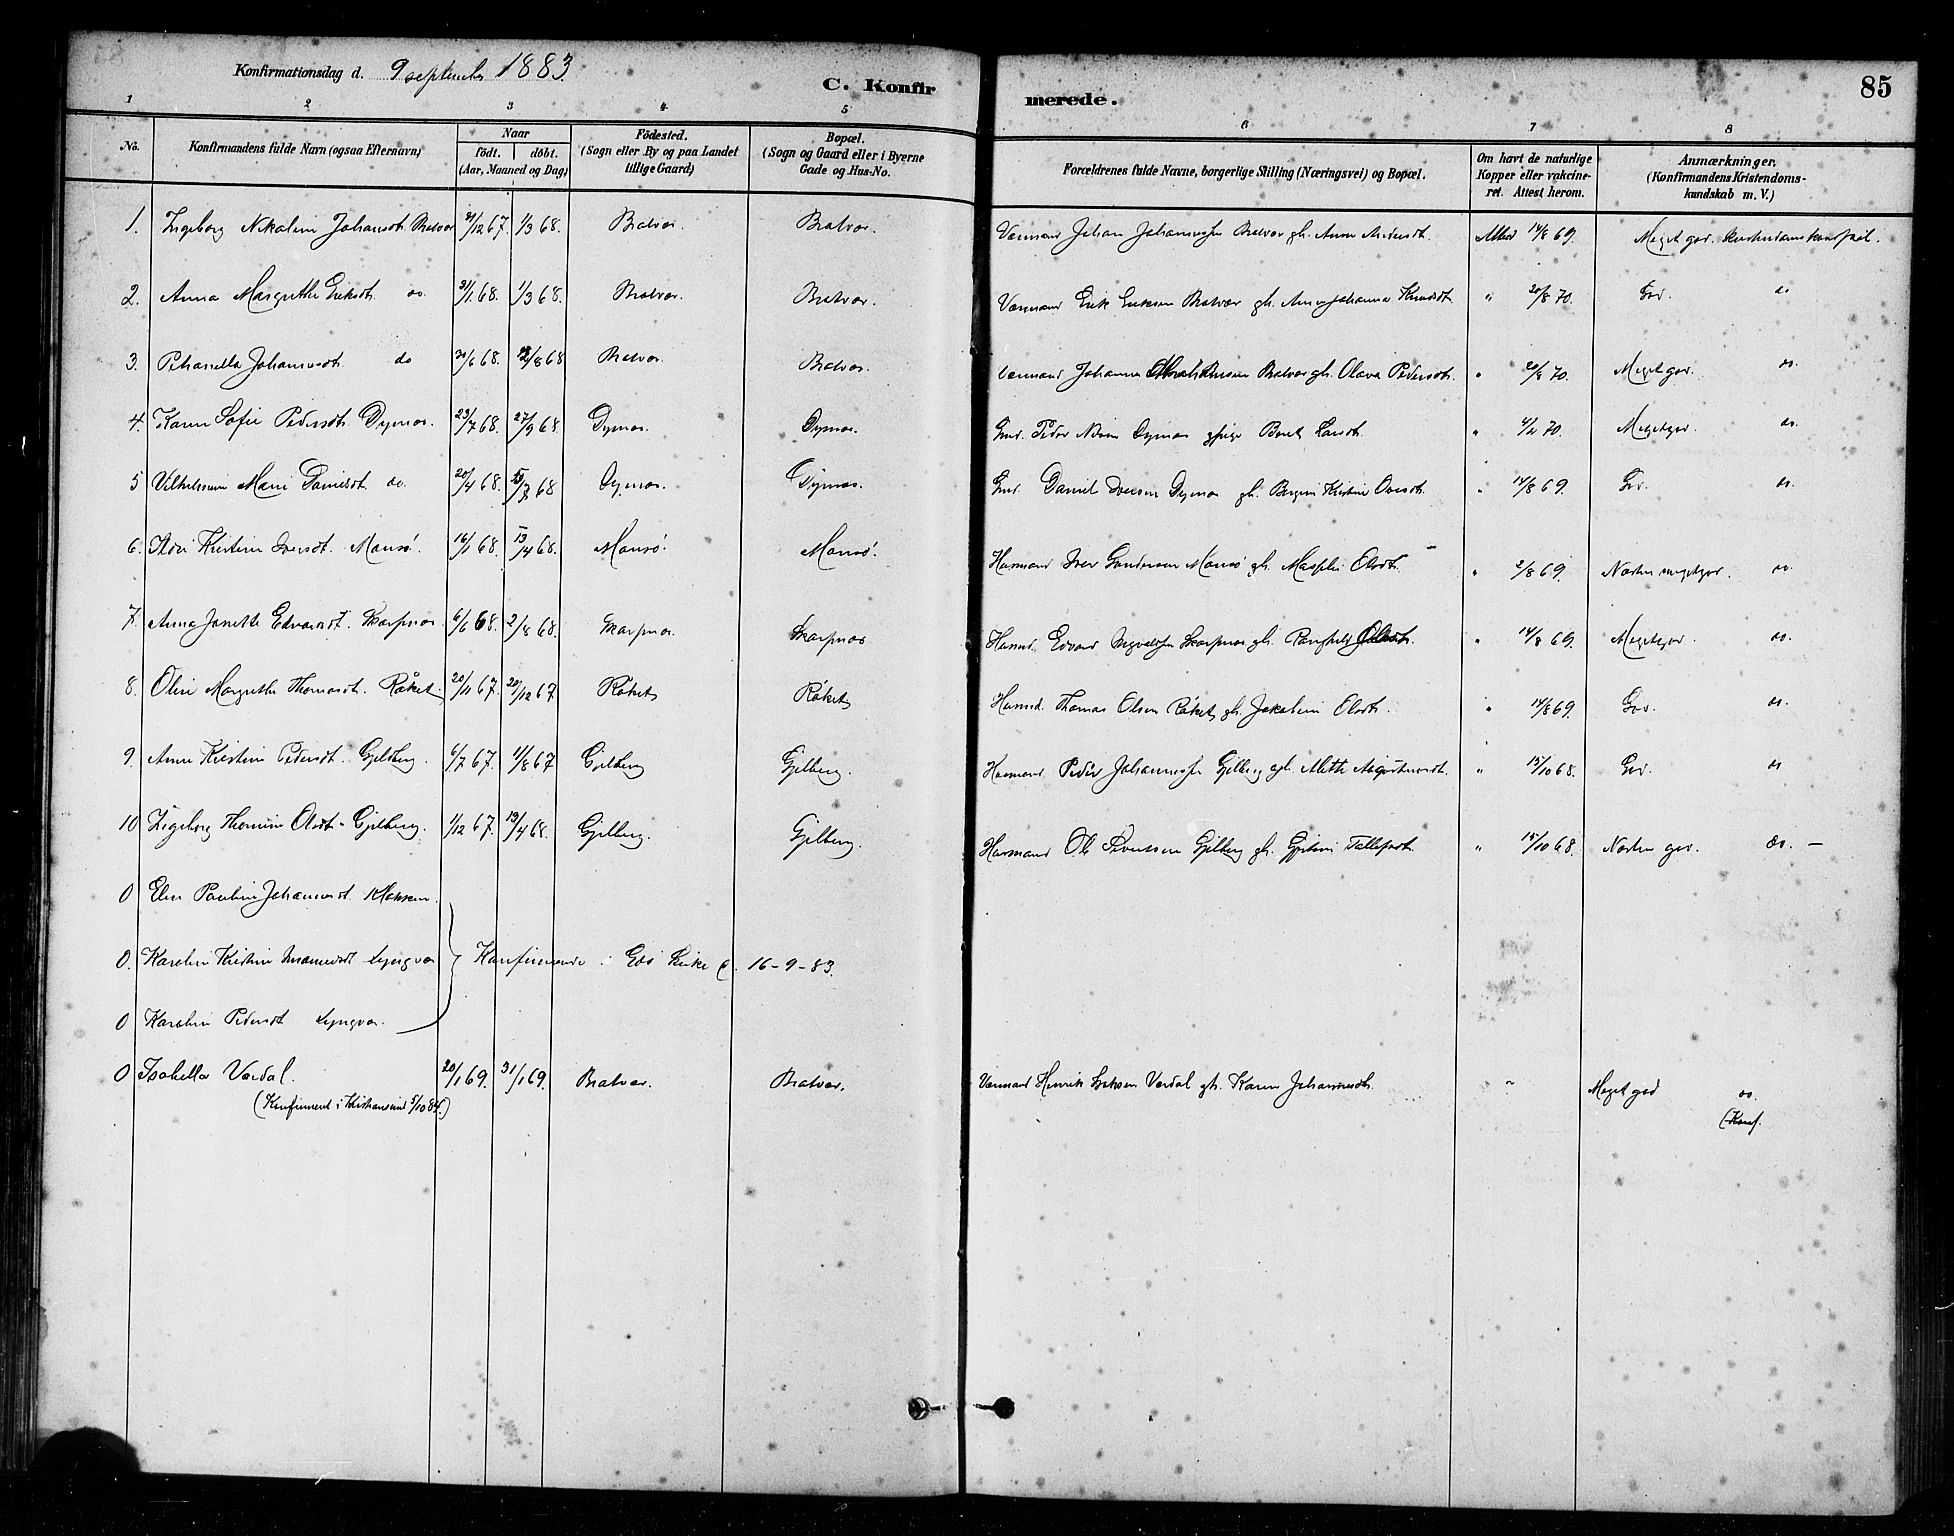 Konfirmationsdag d. 9 september 1883
C. Konfirmerede.
85
1 2 3 4 5 6 7 8
No. Konfirmandens fulde Navn (ogsaa Efternavn) Naar födt. döbt. (Aar, Maaned og Dag) Födested. (Sogn eller By og paa Landet tillige Gaard) Bopæl. (Sogn og Gaard eller i Byerne Gade og Hus-No. Forældrenes fulde Navne, borgerlige Stilling (Næringsvei) og Bopæl. Om havt de naturlige Kopper eller vakcineret. Attest herom. Anmærkninger. (Konfirmandens Kristendomskundskab m. V.)
1. Ingeborg Nikoline Johansdt. Bratvær 21/12 67. 1/3 68. Bratvær. Bratvær. Værmand Johan Johannessen Bratvær gh. Anne Andersdt. Attest 14/8 69. Meget god. kristendomskundskab.
2. Anna Margrethe Eriksdt. do 31/1 68. 1/3 68. Bratvær. Bratvær. Værmand Erik Eriksen Bratvær gh. Anne Johanna Knudsdt. " 20/8 70. God. do
3. Petranella Johannesdt. do 30/6 68. 12/8 68 Bratvær. Bratvær. Værmand Johannes Bratvær gh. Olava Pedersdt. " 20/8 70. Meget god. do.
4. Karen Sofie Pedersdt. Dyrnæs. 23/7 68. 27/9 68. Dyrnæs. Dyrnæs. Gmd. Peder Dyrnæs Beret Larsdt. " 4/2 70. Meget god. do.
5 Vilhelmine Marie Danielsdt. do. 20/4 68. 68 Dyrnæs. Dyrnæs. Gmd. Daniel Iversen Dyrnæs gh. Kristine " 14/8 69. God. do.
6. Kristine Iversdt. Monsö. 16/1 68. 13/4 68. Monsö. Monsö. Husmand Iver Gundersen Monsö gh. Olsdt. " 2/8 69. Næsten meget god. do.
7. Anna Janette Edvardsdt. Skarpnæs. 6/6 68. 2/8 68. Skarpnæs. Skarpnæs Husmd. Edvard Skarpnæs gh. Olsdt. " 14/8 69. Meget god. do.
8. Oline Margrethe Thomasdt. Röket. 20/11 67. 20/12 67 Röket Röket Husmd. Thomas Olsen Röket gh. Jakobine Olsdt. " 14/8 69. God. do.
9. Anne Kristine Pedersdt. Gjelberg. 6/7 67. 11/8 67 Gjelberg Gjelberg. Husmand Peder Johannessen Gjelberg gh. Mette Augustinusdt. " 15/10 68. God. do
10 Ingeborg Thomine Olsdt. Gjelberg. 1/12 67. 13/4 68. Gjelberg. Gjelberg. Husmand Ole Sivertsen Gjelberg gh. Gjertine Tollefsdt. " 15/10 68. Næsten god. do. —
0 Elen Pauline Johannesdt. Klokken.
0. Karoline Kristine Lyngvær Konfirmerede i Edö Kirke d. 16-9-83.
0 Karoline Pedersdt Lyngvær.
0 Isabella Værdal. 20/1 69. 31/1 69. Bratvær. Bratvær. Værmand Henrik Eriksen Værdal gh. Karen Johannesdt. " Meget god do.
(Konfirmeret i Kristiansund 5/10 84.) (Konf.